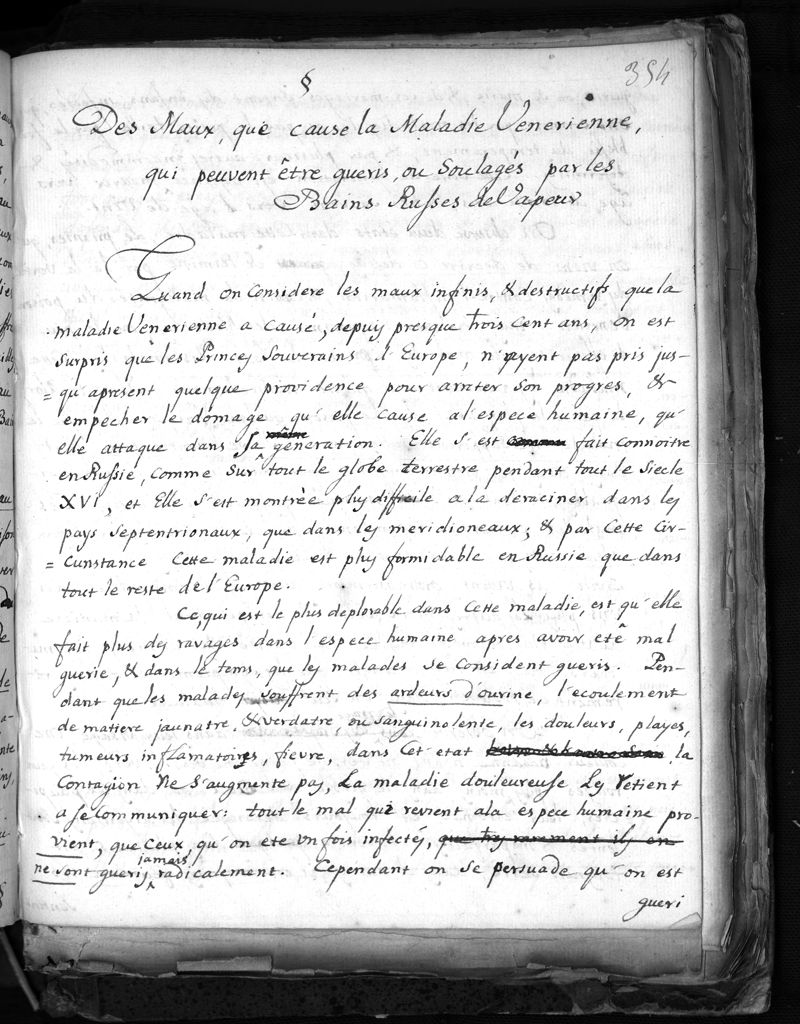 §
354
Des Maux, que cause la Maladie Venerienne,
qui peuvent être gueris, ou Soulagés par les
Bains Russes de Vapeur
Quand on considere les maux infinis, & destructifs que la
maladie Venerienne a causé, depuis presque trois cent ans, on est
surpris que les Princes Souverains d'Europe, n'ayent pas pris jus-
= qu'apresent quelque providence pour arreter son progres, &
empecher le domage qu'elle cause al'espece humaine, qu'
elle attaque dans sa même generation. Elle s'est fait connoitre
en Russie, comme sur tout le globe terrestre pendant tout le siecle
XVI, et Elle s'est montrée plus difficile a la deraciner dans les
pays septentrionaux, que dans les meridioneaux; & par cette cir-
= cunstance cette maladie est plus formidable en Russie que dans
tout le reste de l'Europe.
Ce, qui est le plus deplorable dans cette maladie, est qu'elle
fait plus des ravages dans l'espece humaine apres avoir eté mal
guerie, & dans le tems, que les malades se consident gueris. Pen-
dant que les malades souffrent des ardeurs d'ourine, l'ecoulement
de matiere jaunatre, & verdatre, ou sanguinolente, les douleurs, playes,
tumeurs inflamatoires, fievre, dans cet etat la
Contagion ne s'augmente pas, La maladie douleureuse les retient
a se communiquer: tout le mal que revient ala espece humaine pro-
vient, que ceux, qu'on ete un fois infectés, que tres rarement ils en
ne sont gueris jamais radicalement. Cependant on se persuade qu'on est
gueri